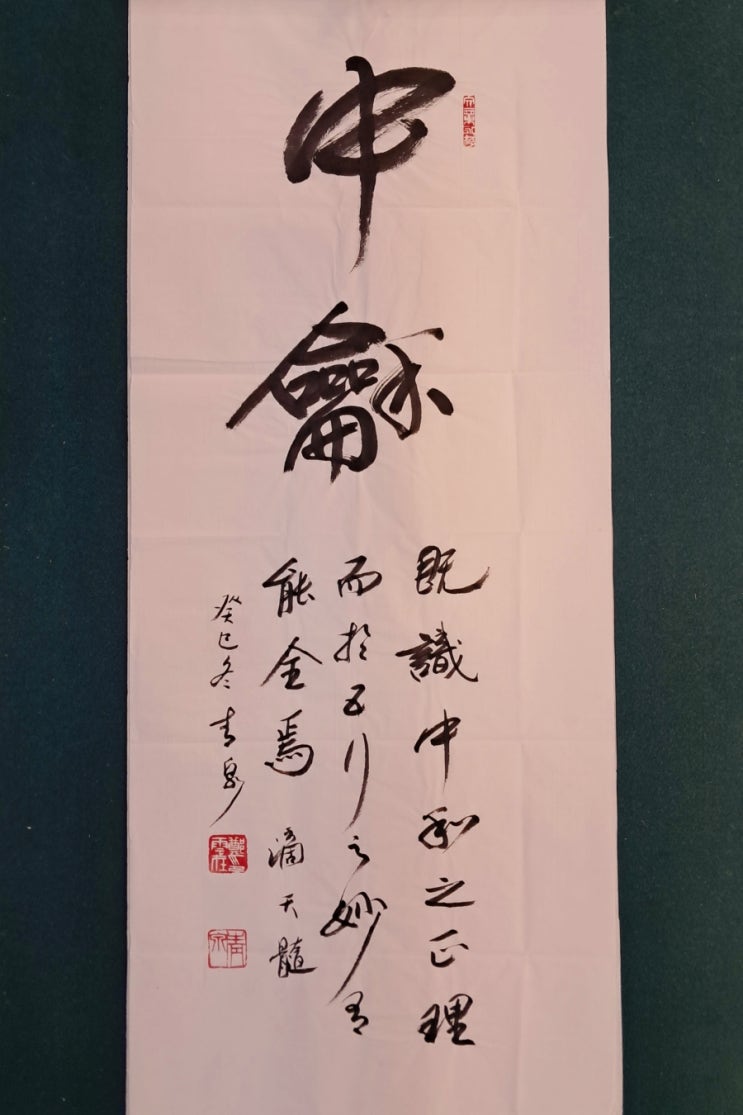 中龢
既識中和之正理
而於五行之妙有
能全焉 滴天髓
癸巳冬 青泉